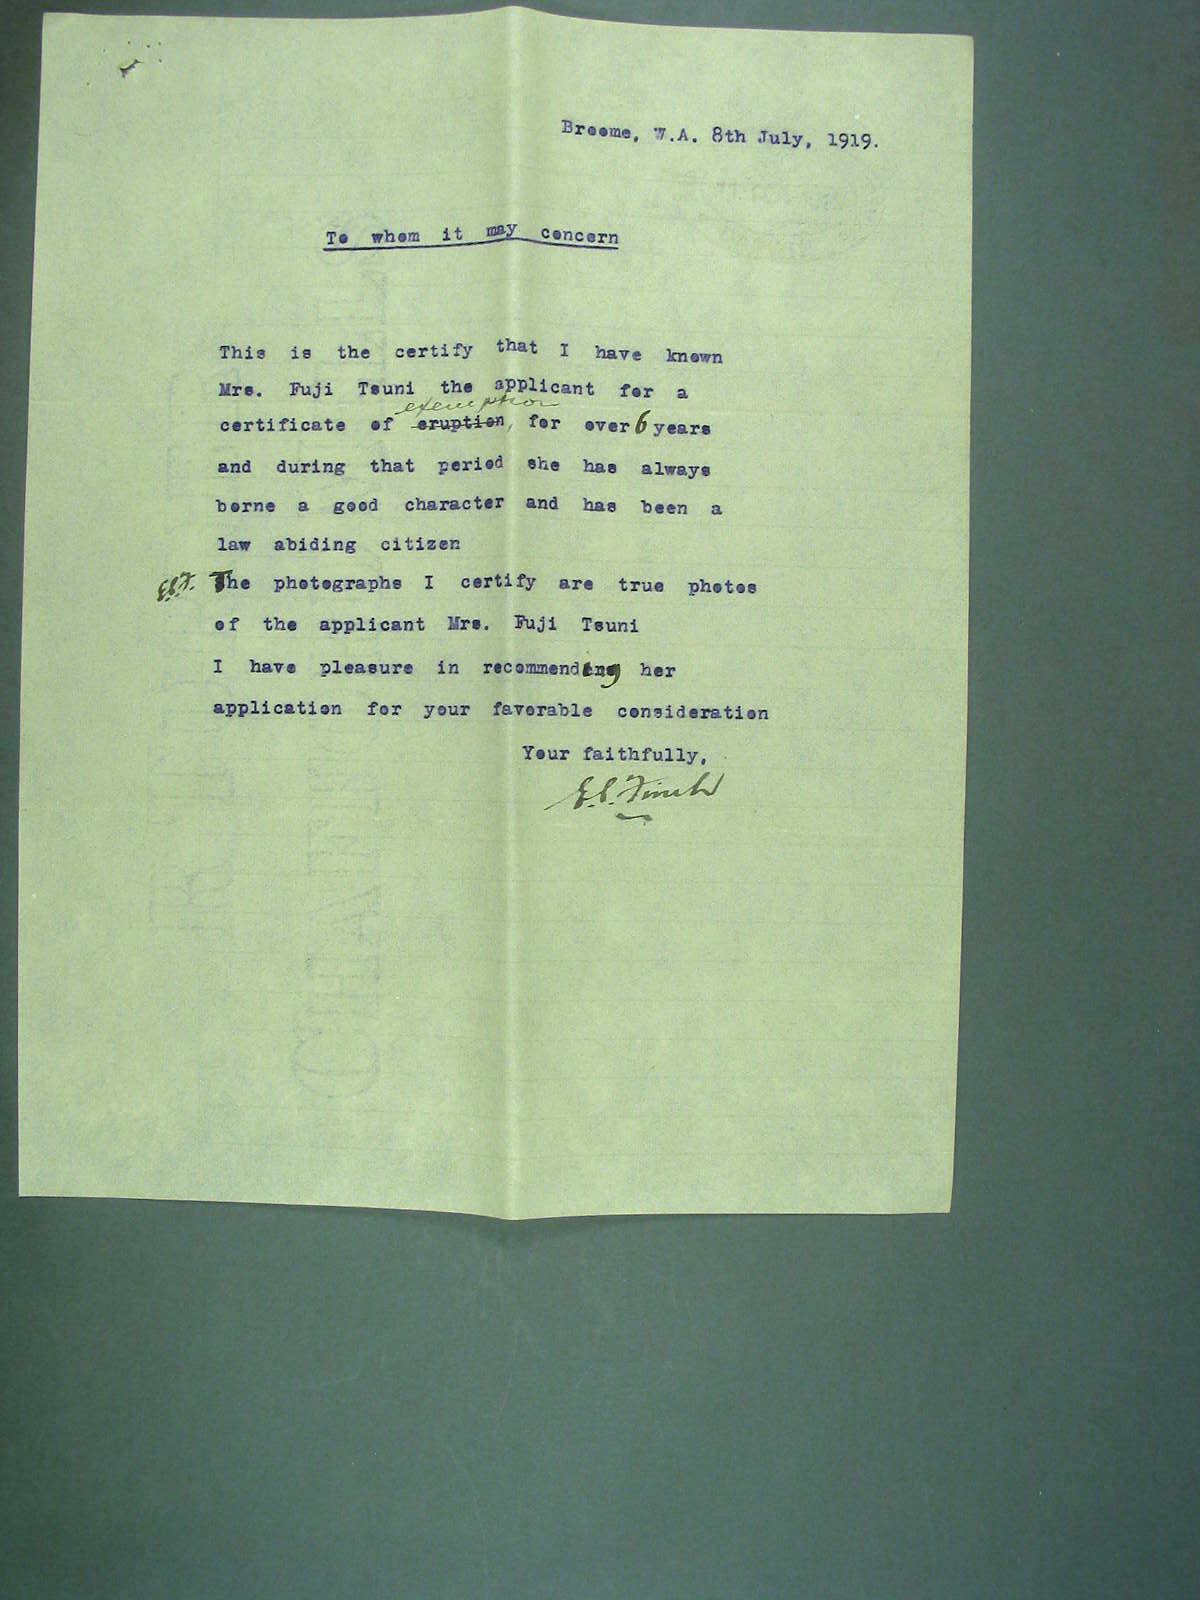 Broome, W.A. 8th July, 1919.
To whom it may concern
This is the certify that I have known
Mrs. Fuji Tsuni the applicant for a
exemption
certificate of eruption, for over 6 years
and during that period she has always
borne a good character and has been a
law abiding citizen
E.C.F. The photographs I certify are true photos
of the applicant Mrs. Fuji Tsuni
I have pleasure in recommending her
application for your favorable consideration
Your faithfully,
E.C. Finch